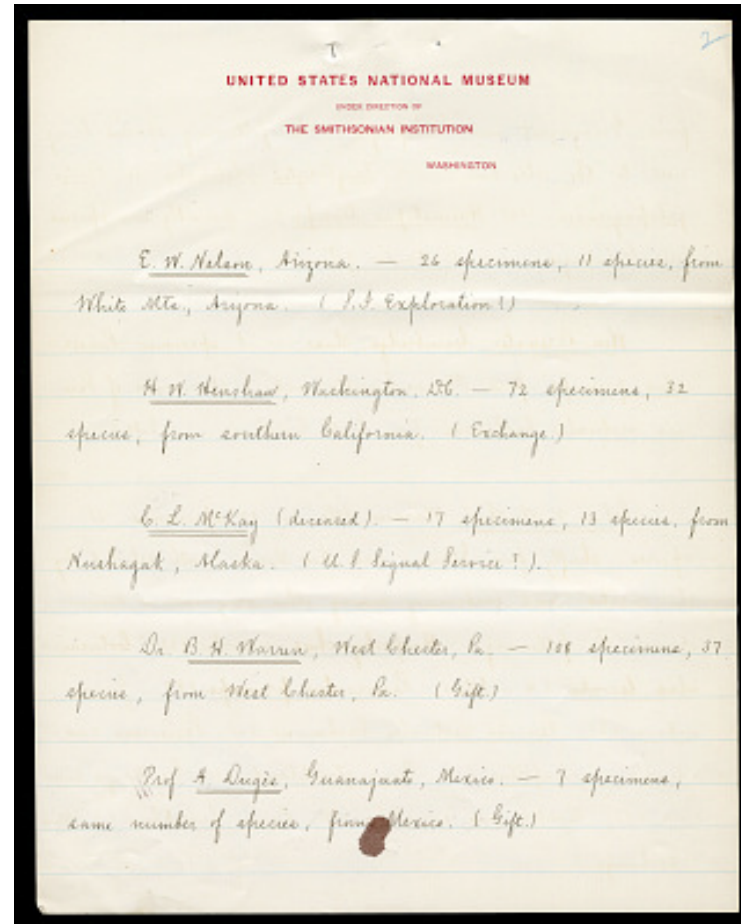 2
UNITED STATES NATIONAL MUSEUM
UNDER DIRECTION OF
THE SMITHSONIAN INSTITUTION
WASHINGTON
E. W. Nelson, Arizona. — 26 specimens, 11 species, from
White Mts., Arizona. (S.I. Exploration!)
H. W. Henshaw, Washington, D.C. — 72 specimens, 32
species, from southern California. (Exchange.)
C. L. McKay (deceased). — 17 specimens, 13 species, from
Nushagak, Alaska. (U. S. Signal Service!).
Dr. B. H. Warren, West Chester, Pa. — 108 specimens, 37
species, from West Chester, Pa. (Gift.)
Prof A. Dugès, Guanajuato, Mexico. — 7 specimens,
same number of species, from Mexico. (Gift.)